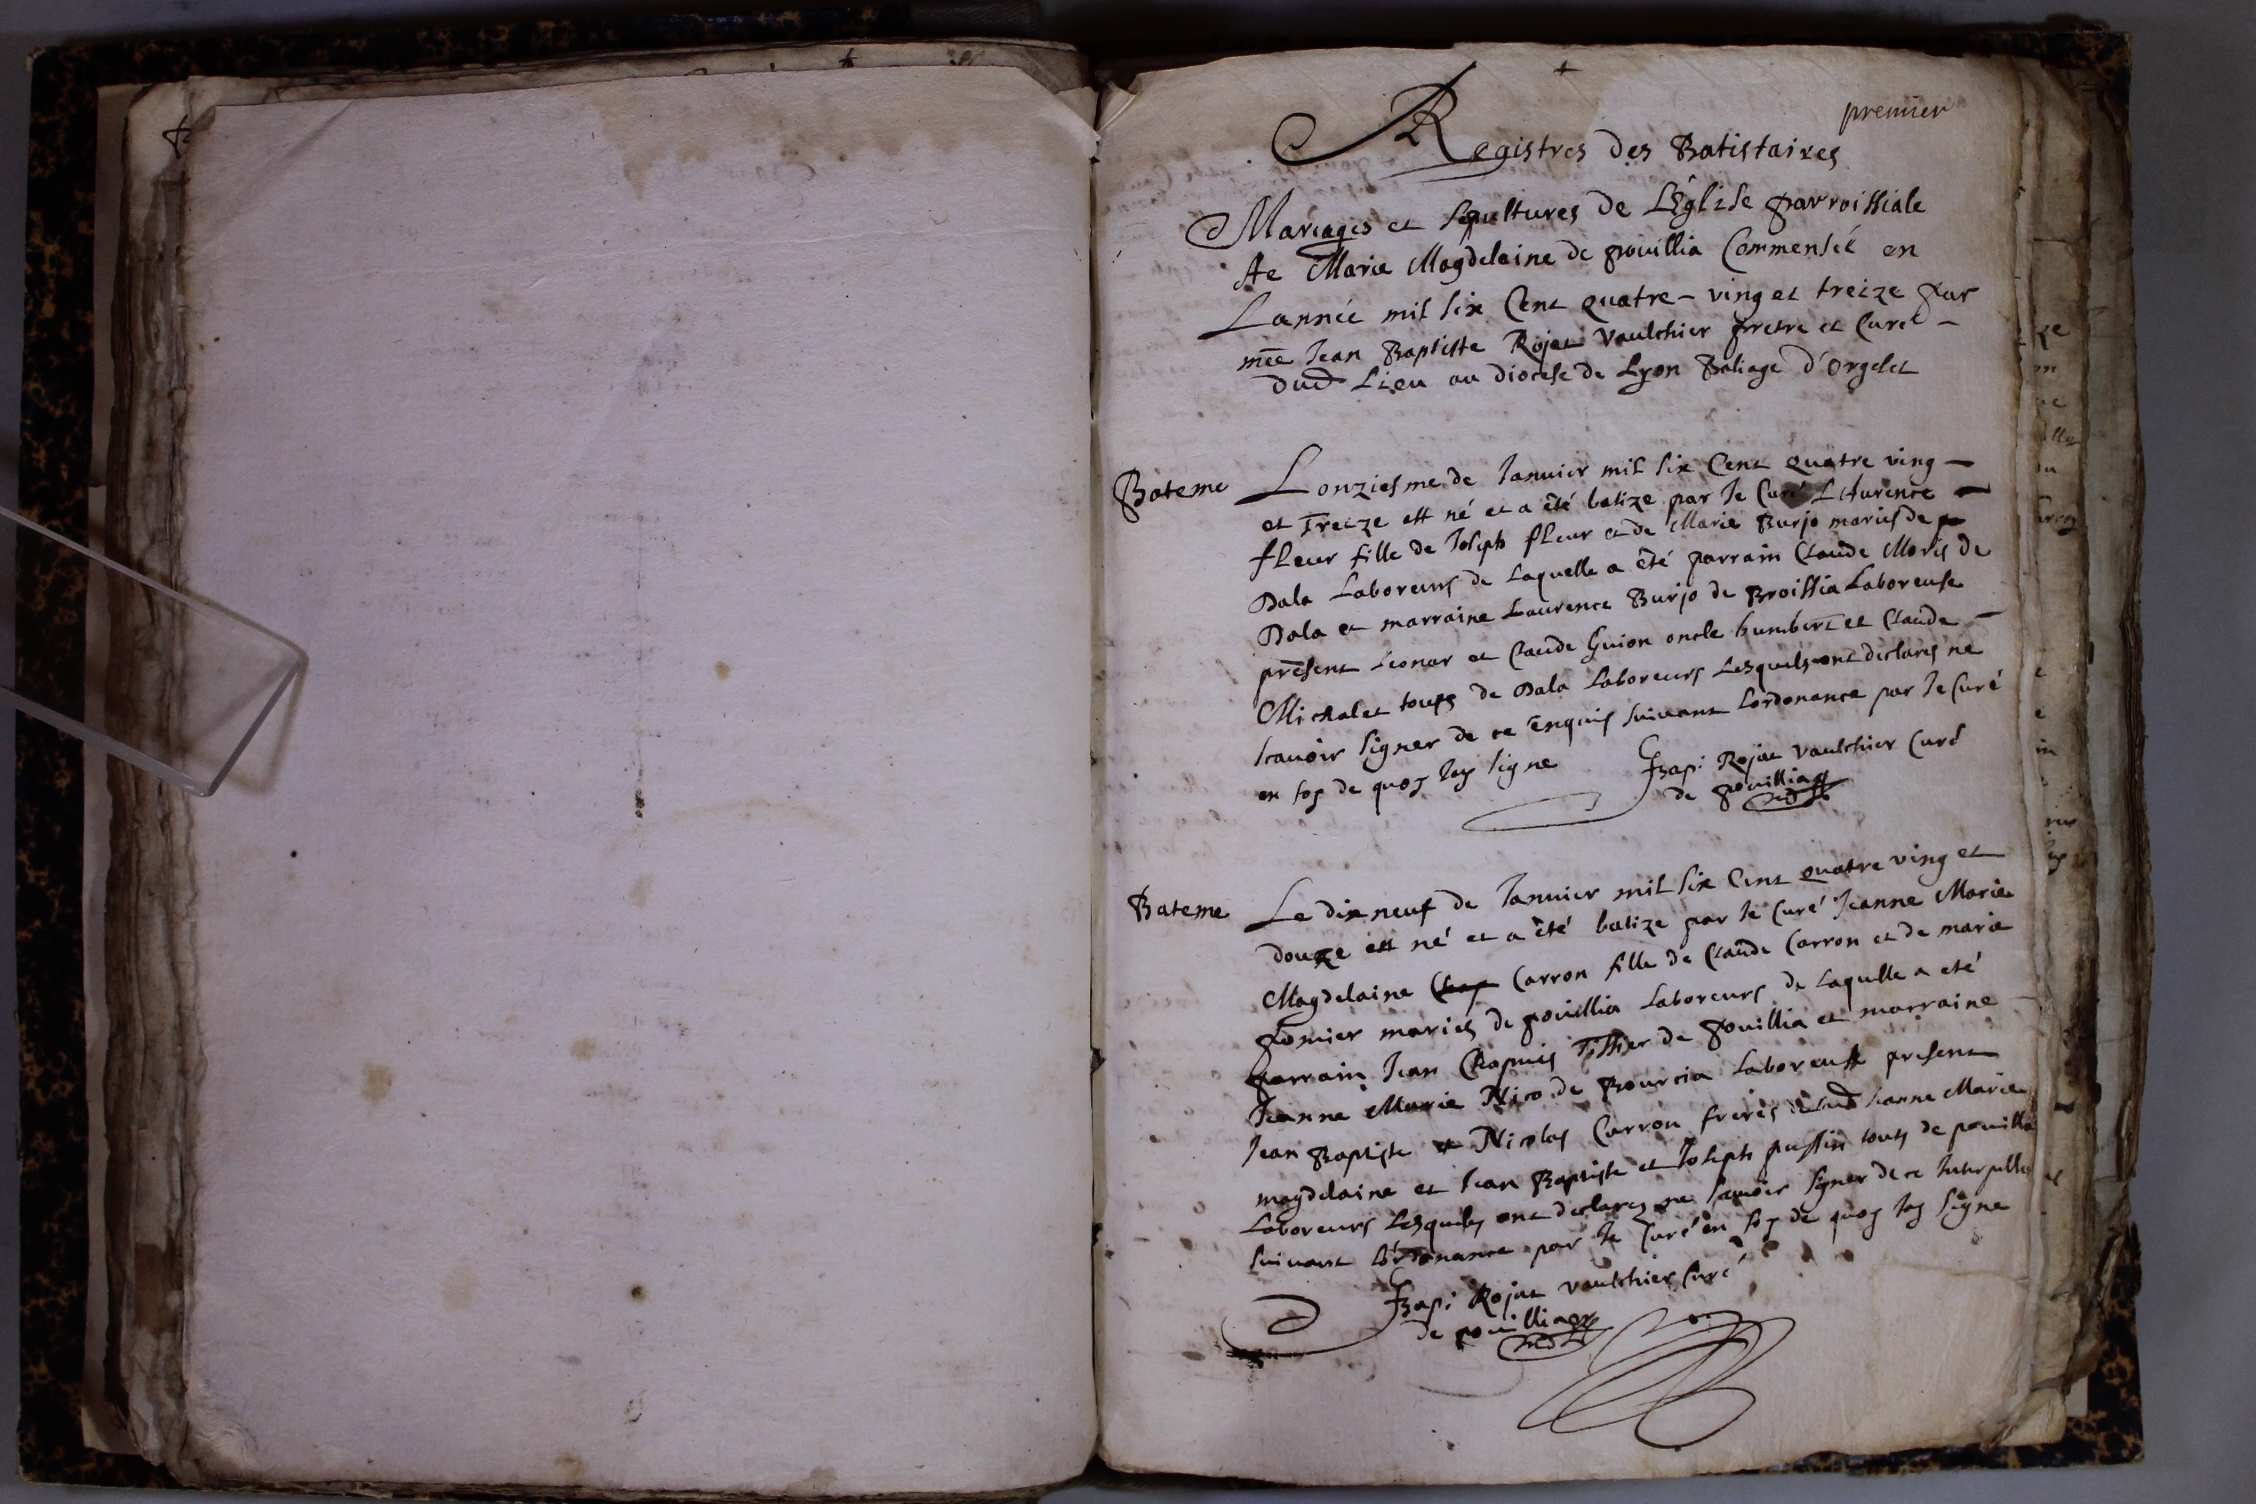 premier
Registres des Batistaires
Mariages et sepultures de LEglise parroissiale
Ste Marie Magdelaine de pouillia Commensée en
Lannée mil six Cent quatre-ving et treize par
mre Jean Baptiste Rojat Vaulchier pretre et Curé -
dud Lieu au diocese de Lyon Baliage d'Orgelet
Bateme
Lonziesme de Janvier mil six Cent quatre ving -
et Treize est né et a été batize par le Curé Laurence
fleur fille de Joseph fleur et de Marie Burjo mariés de
Dala Laboreurs de Laquelle a été parrain Claude Moris de
Dala et marraine Laurence Burjo de Broissia Laboreuse
présent Leonar et Claude Guion oncle humbert et Claude -
Michalet touts de Dala Laboreurs Lesquels ont declarés ne
scavoir signer de ce Enquis suivant Lordonance par le Curé
en foy de quoy Jay signe
JBapt Rojat Vaulchier Curé
de pouillia
Bateme
Le dixneuf de Janvier mil six Cent quatre ving et
douze est né et a été batize par le Curé Jeanne Marie
Magdelaine Carron fille de Claude Carron et de marie
pomier mariés de pouillia Laboreurs de Laquelle a eté
parrain Jean Chapuis Tissier de pouillia et marraine
Jeanne Marie Nico de Bourcia Laboreuse present
Jean Baptiste et Nicolas Carron freres de lad Jeanne Marie
magdelaine et Jean Baptiste et Joseph pussin touts de pouillia
Laboreurs Lesquels ont declarez ne scavoir signer de ce
suivant Lordonance par le Curé en foy de quoy Jay signe
JBapt Rojat Vaulchier Curé
de pouillia